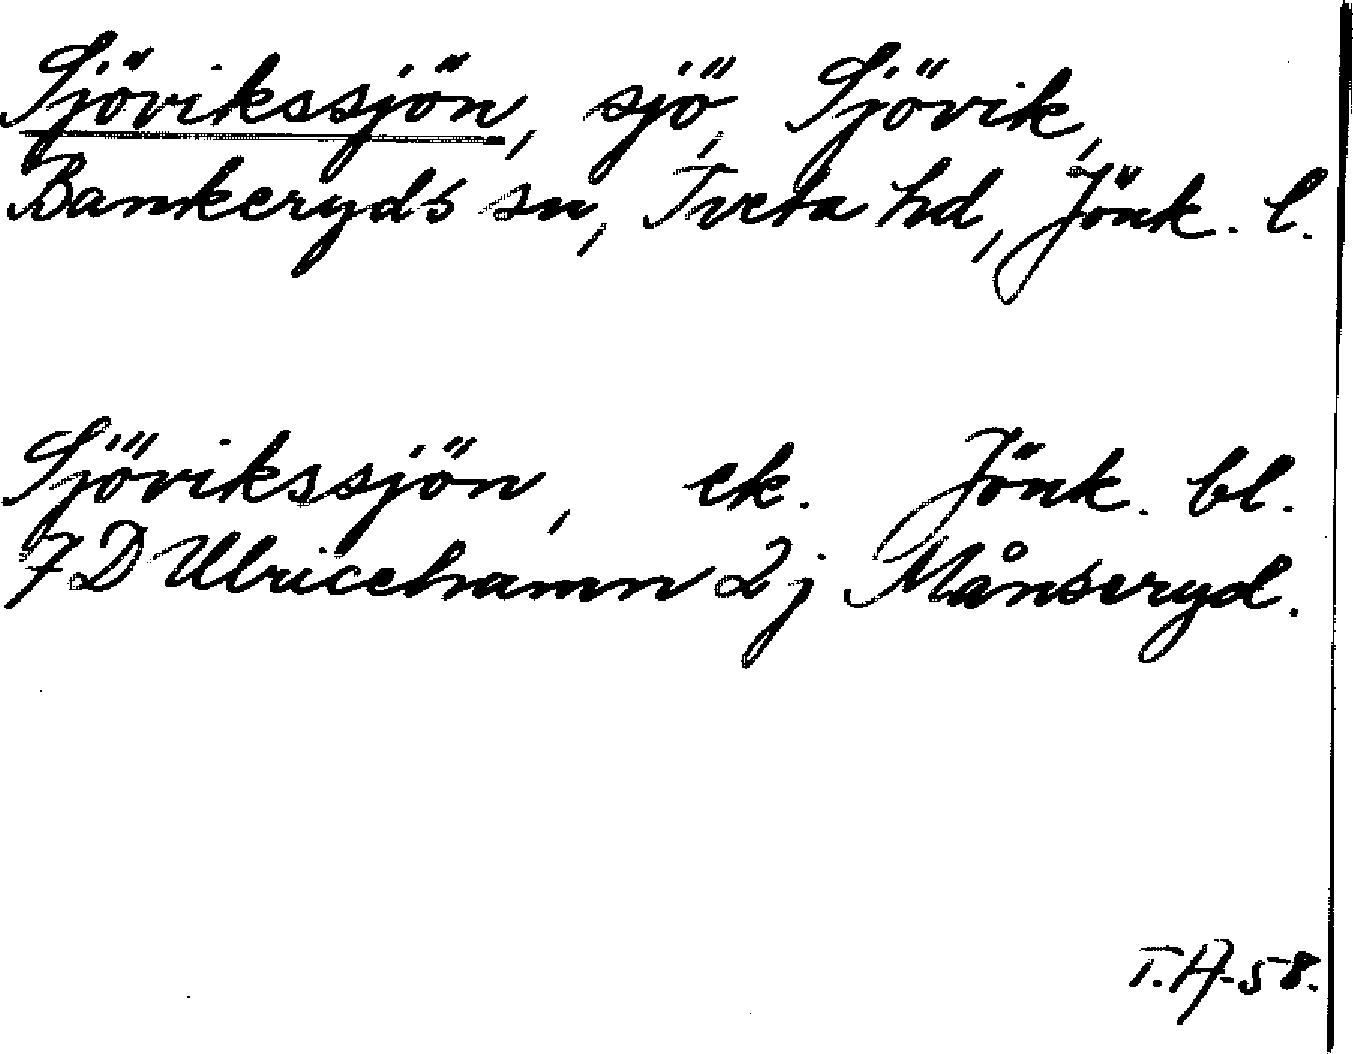 Sjövikssjön, sjö, Sjövik,
Bankeryds sn, Tveta hd, Jönk. l.
Sjövikssjön, ek. Jönk. bl.
7D Ulricehamn 2j Månseryd.
T.A-58.